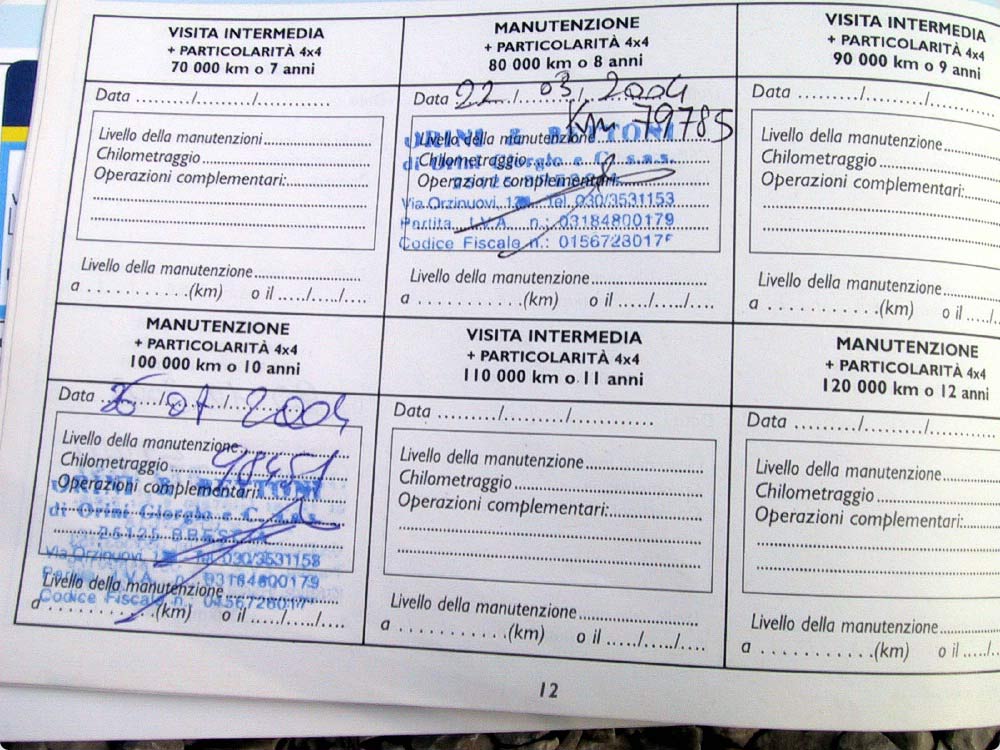 VISITA INTERMEDIA
+ PARTICOLARITÀ 4x4
70 000 km o 7 anni
Data ........./......../............
Livello della manutenzioni
Chilometraggio
Operazioni complementari:
Livello della manutenzione
a ...........(km) o il ...../...../....
MANUTENZIONE
+ PARTICOLARITÀ 4x4
80 000 km o 8 anni
Data 22 / 03 / 2004
Km 79785
Livello della manutenzione
& BETTONI
Chilometraggio
di Orini Giorgio e C. s.a.s.
Operazioni complementari:
Via Orzinuovi, Tel. 030/3531153
Partita I.V.A. n.: 03184800179
Codice Fiscale n.:
Livello della manutenzione
a ...........(km) o il ...../...../....
VISITA INTERMEDIA
+ PARTICOLARITÀ 4x4
90 000 km o 9 anni
Data ........./......../
Livello della manutenzione
Chilometraggio
Operazioni complementari:
Livello della manutenzione
a ...........(km) o il ...../....
MANUTENZIONE
+ PARTICOLARITÀ 4x4
100 000 km o 10 anni
Data / 07 / 2004
Livello della manutenzione
Chilometraggio 98451
Operazioni complementari:
& BETTONI
di Orini Giorgio e C. s.a.s.
25125 BRESCIA
Via Orzinuovi, Tel. 030/3531153
Partita I.V.A. n. 03184800179
Livello della manutenzione
Codice Fiscale n.
a ...........(km) o il ...../...../....
VISITA INTERMEDIA
+ PARTICOLARITÀ 4x4
110 000 km o 11 anni
Data ........./......../............
Livello della manutenzione
Chilometraggio
Operazioni complementari:
Livello della manutenzione
a ...........(km) o il ...../...../....
MANUTENZIONE
+ PARTICOLARITÀ 4x4
120 000 km o 12 anni
Data ........./......../
Livello della manutenzione
Chilometraggio
Operazioni complementari:
Livello della manutenzione
a ...........(km) o il ...../..
12